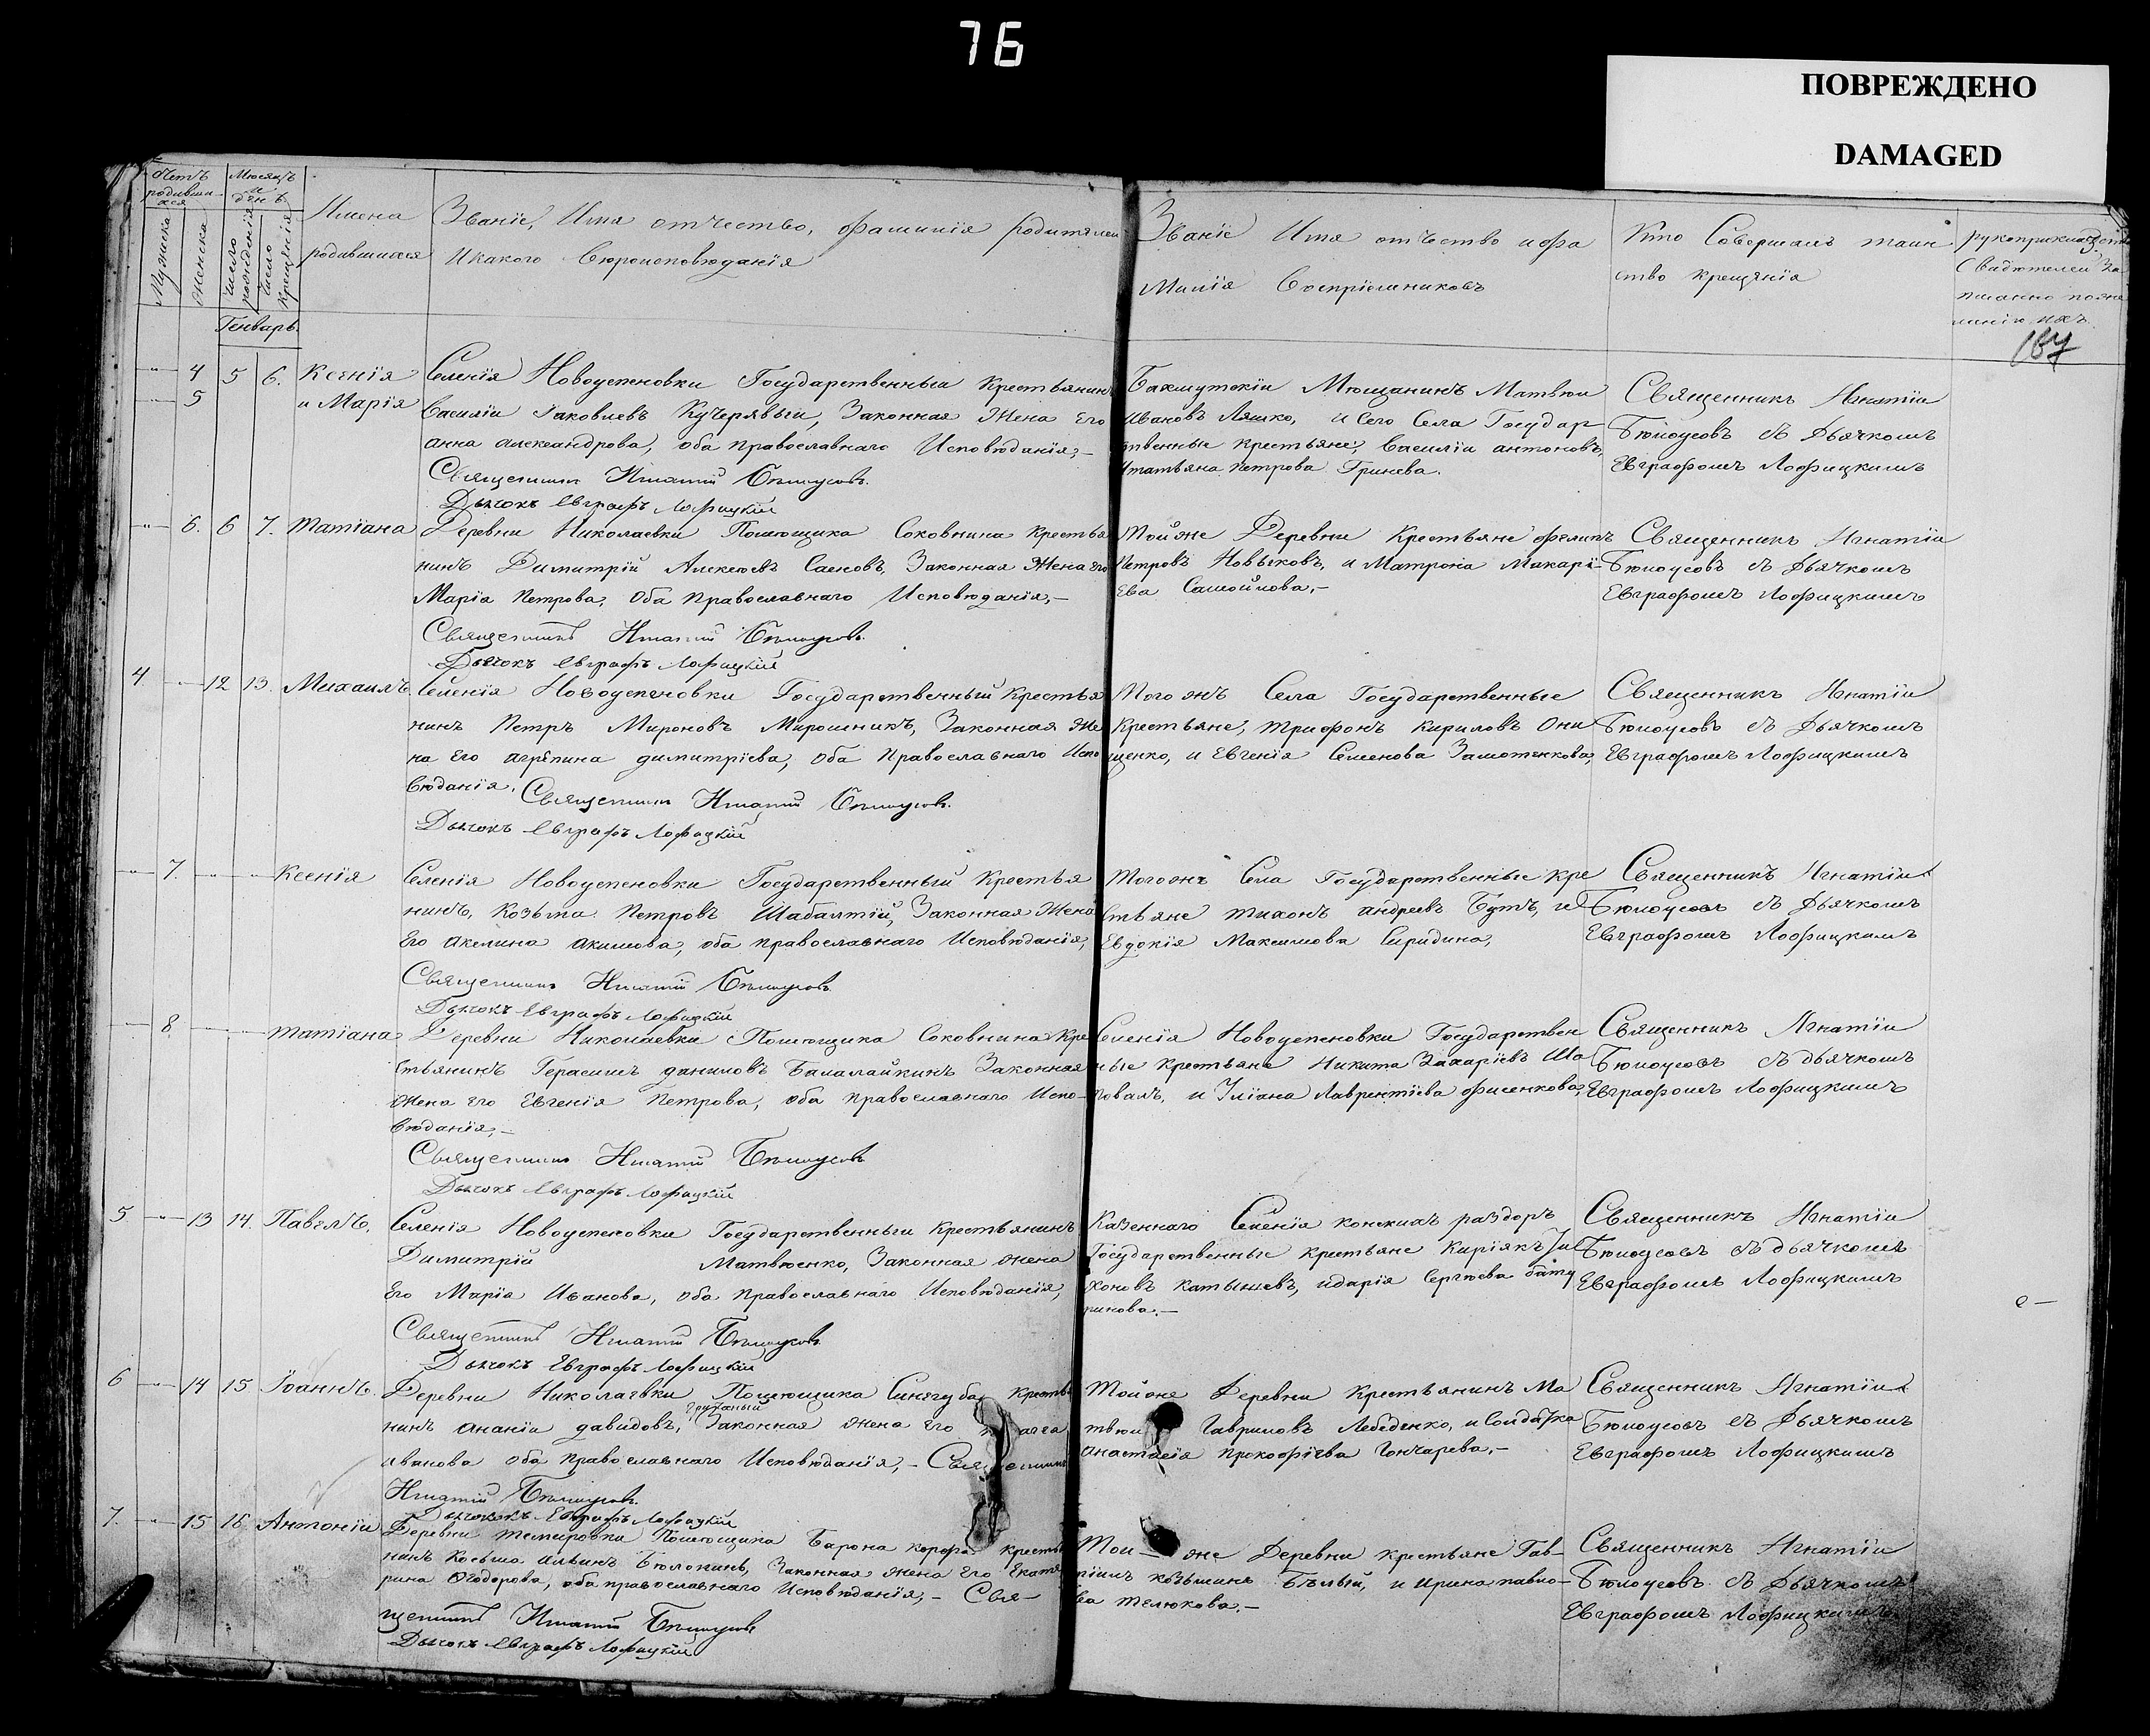 76
ПОВРЕЖДЕНО
DAMAGED
Счетъ родившихся
Мѣсяцъ и день
Мужеска
Женска
Число рожденія
Число крещенія
Имена
родившихся
Званіе, Имя отчество, фамилія родителей
и какого вѣроисповѣданія
Званіе Имя отчество и фа
милія воспріемниковъ
Кто Совершалъ таин
ство крещенія
рукоприкладство
Свидѣтелей За
писанно по же
ланію ихъ.
Генварь.
187
4 5 6. Ксенія
5 и Марія
Селенія Новоуспеновки Государственный Крестьянинъ
Василій Іаковлевъ Кучерявый, Законная Жена Его
анна александрова, оба православнаго Исповѣданія,-
Священникъ Игнатій Бѣлоусовъ.
Дьячокъ Евграфъ Лофицкій
Бахмутскій Мѣщанинъ Матвѣй
Ивановъ Ляшко, и Сего Села Государ
ственные крестьяне, Василій антоновъ,
и татьяна петрова Гринева.
Священникъ Игнатій
Бѣлоусовъ съ Дьячкомъ
Евграфомъ Лофицкимъ
6. 6 7. татіана
Деревни Николаевки Помѣщика Соковнина Крестья
нинъ Димитрій Алексѣевъ Саеновъ, Законная Жена его
Марія Петрова, Оба Православнаго Исповѣданія,-
Священникъ Игнатій Бѣлоусовъ.
Дьячокъ Евграфъ Лофицкій
Тойже Деревни Крестьяне филипъ
Петровъ Новьковъ, и Матрона Макарі-
Ева Самойлова,-
Священникъ Игнатій
Бѣлоусовъ съ Дьячкомъ
Евграфомъ Лофицкимъ
4. 12 13. Михаилъ
Селенія Новоуспеновки Государственный Крестья
нинъ Петръ Мироновъ Мирошникъ, Законная Же
на Его агрѣпина димитріева, оба Православнаго Испо
вѣданія. Священникъ Игнатій Бѣлоусовъ.
Дьячокъ Евграфъ Лофицкій
Того жъ Села Государственные
Крестьяне, трифонъ Кириловъ Они
щенко, и Евгенія Семенова Замотенкова,
Священникъ Игнатій
Бѣлоусовъ съ Дьячкомъ
Евграфомъ Лофицкимъ
7. Ксенія
Селенія Новоуспеновки Государственный Крестья
нинъ, Козьма Петровъ Шабалтій, Законная Жена
Его акелина акимова, оба православнаго Исповѣданія,
Священникъ Игнатій Бѣлоусовъ
Дьячокъ Евграфъ Лофицкій
Тогожъ Села Государственные Кре
стьяне тихонъ андреевъ Бутъ, и
Евдокія Максимова Спридина,
Священникъ Игнатій
Бѣлоусовъ съ Дьячкомъ
Евграфомъ Лофицкимъ
8. татіана
Деревни Николаевки Помѣщика Соковнина Кре
стьянинъ Герасимъ даниловъ Балалайкинъ Законная
Жена его Евгенія Петрова, оба православнаго Испо-
вѣданія,-
Священникъ Игнатій Бѣлоусовъ
Дьячокъ Евграфъ Лофицкій
Селенія Новоуспеновки Государствен
ные крестьяне Никита Захаріевъ Ша
повалъ, и Іуліана Лаврентіева фисенкова,
Священникъ Игнатій
Бѣлоусовъ съ дьячкомъ
Евграфомъ Лофицкимъ
5 13 14. Павелъ.
Селенія Новоуспеновки Государственный Крестьянинъ
Димитрій Матвѣенко, Законная жена
Его Марія Иванова, оба православнаго Исповѣданія,
Священникъ Игнатій Бѣлоусовъ
Дьячокъ Евграфъ Лофицкій
Казеннаго Селенія конскихъ раздоръ
Государственные крестьяне Киріякъ ти
хоновъ Катышевъ, и дарія Сергѣева бату
ринова.-
Священникъ Игнатій
Бѣлоусовъ съ дьячкомъ
Евграфомъ Лофицкимъ
6 14 15 Іоаннъ.
Деревни Николаевки Помѣщика Синегуба Крестья
нинъ ананій давидовъ, Законная жена его
иванова оба православнаго Исповѣданія,- Священникъ
Игнатій Бѣлоусовъ.
Дьячокъ Евграфъ Лофицкій
Тойже Деревни Крестьянинъ Ма
твѣй Гавриловъ Лебеденко, и Солдатка
анастасія прокофіева Гончарева,-
Священникъ Игнатій
Бѣлоусовъ съ Дьячкомъ
Евграфомъ Лофицкимъ
7. 15 16 Антоній
Деревни темировки Помѣщика Барона корфа крестья
нинъ Косьма ильинъ Бѣлокинь, Законная жена Его Екате
рина Ѳеодорова, оба православнаго Исповѣданія,- Свя-
щенникъ Игнатій Бѣлоусовъ
Дьячокъ Евграфъ Лофицкій
Той же Деревни крестьяне Гав-
ріилъ козьминъ Бѣлый, и ирина павло-
ва телюкова.-
Священникъ Игнатій
Бѣлоусовъ съ Дьячкомъ
Евграфомъ Лофицкимъ